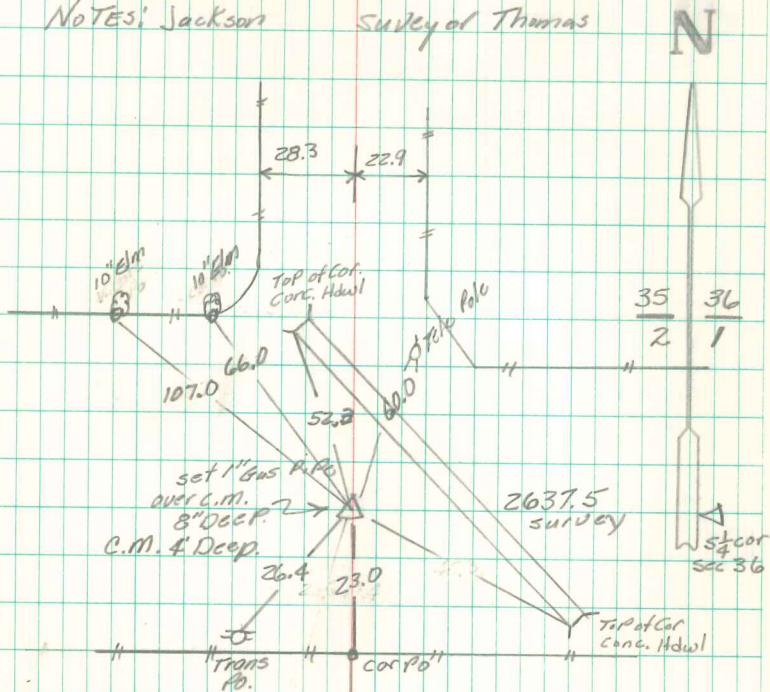 NOTES: Jackson Suveyor Thomas
N
28.3 22.9
10" Elm
10" Elm
Top of Cor.
Conc. Hdwl
Tele Pole
35 36
2 1
66.0
107.0
60.0
set 1" Gas Pipe
over C.M.
8" Deep.
C.M. 4' Deep.
2637.5
survey
S 1/4 cor
sec 36
26.4
23.0
Top of Cor
Conc. Hdwl
Trans
Po.
Cor Po